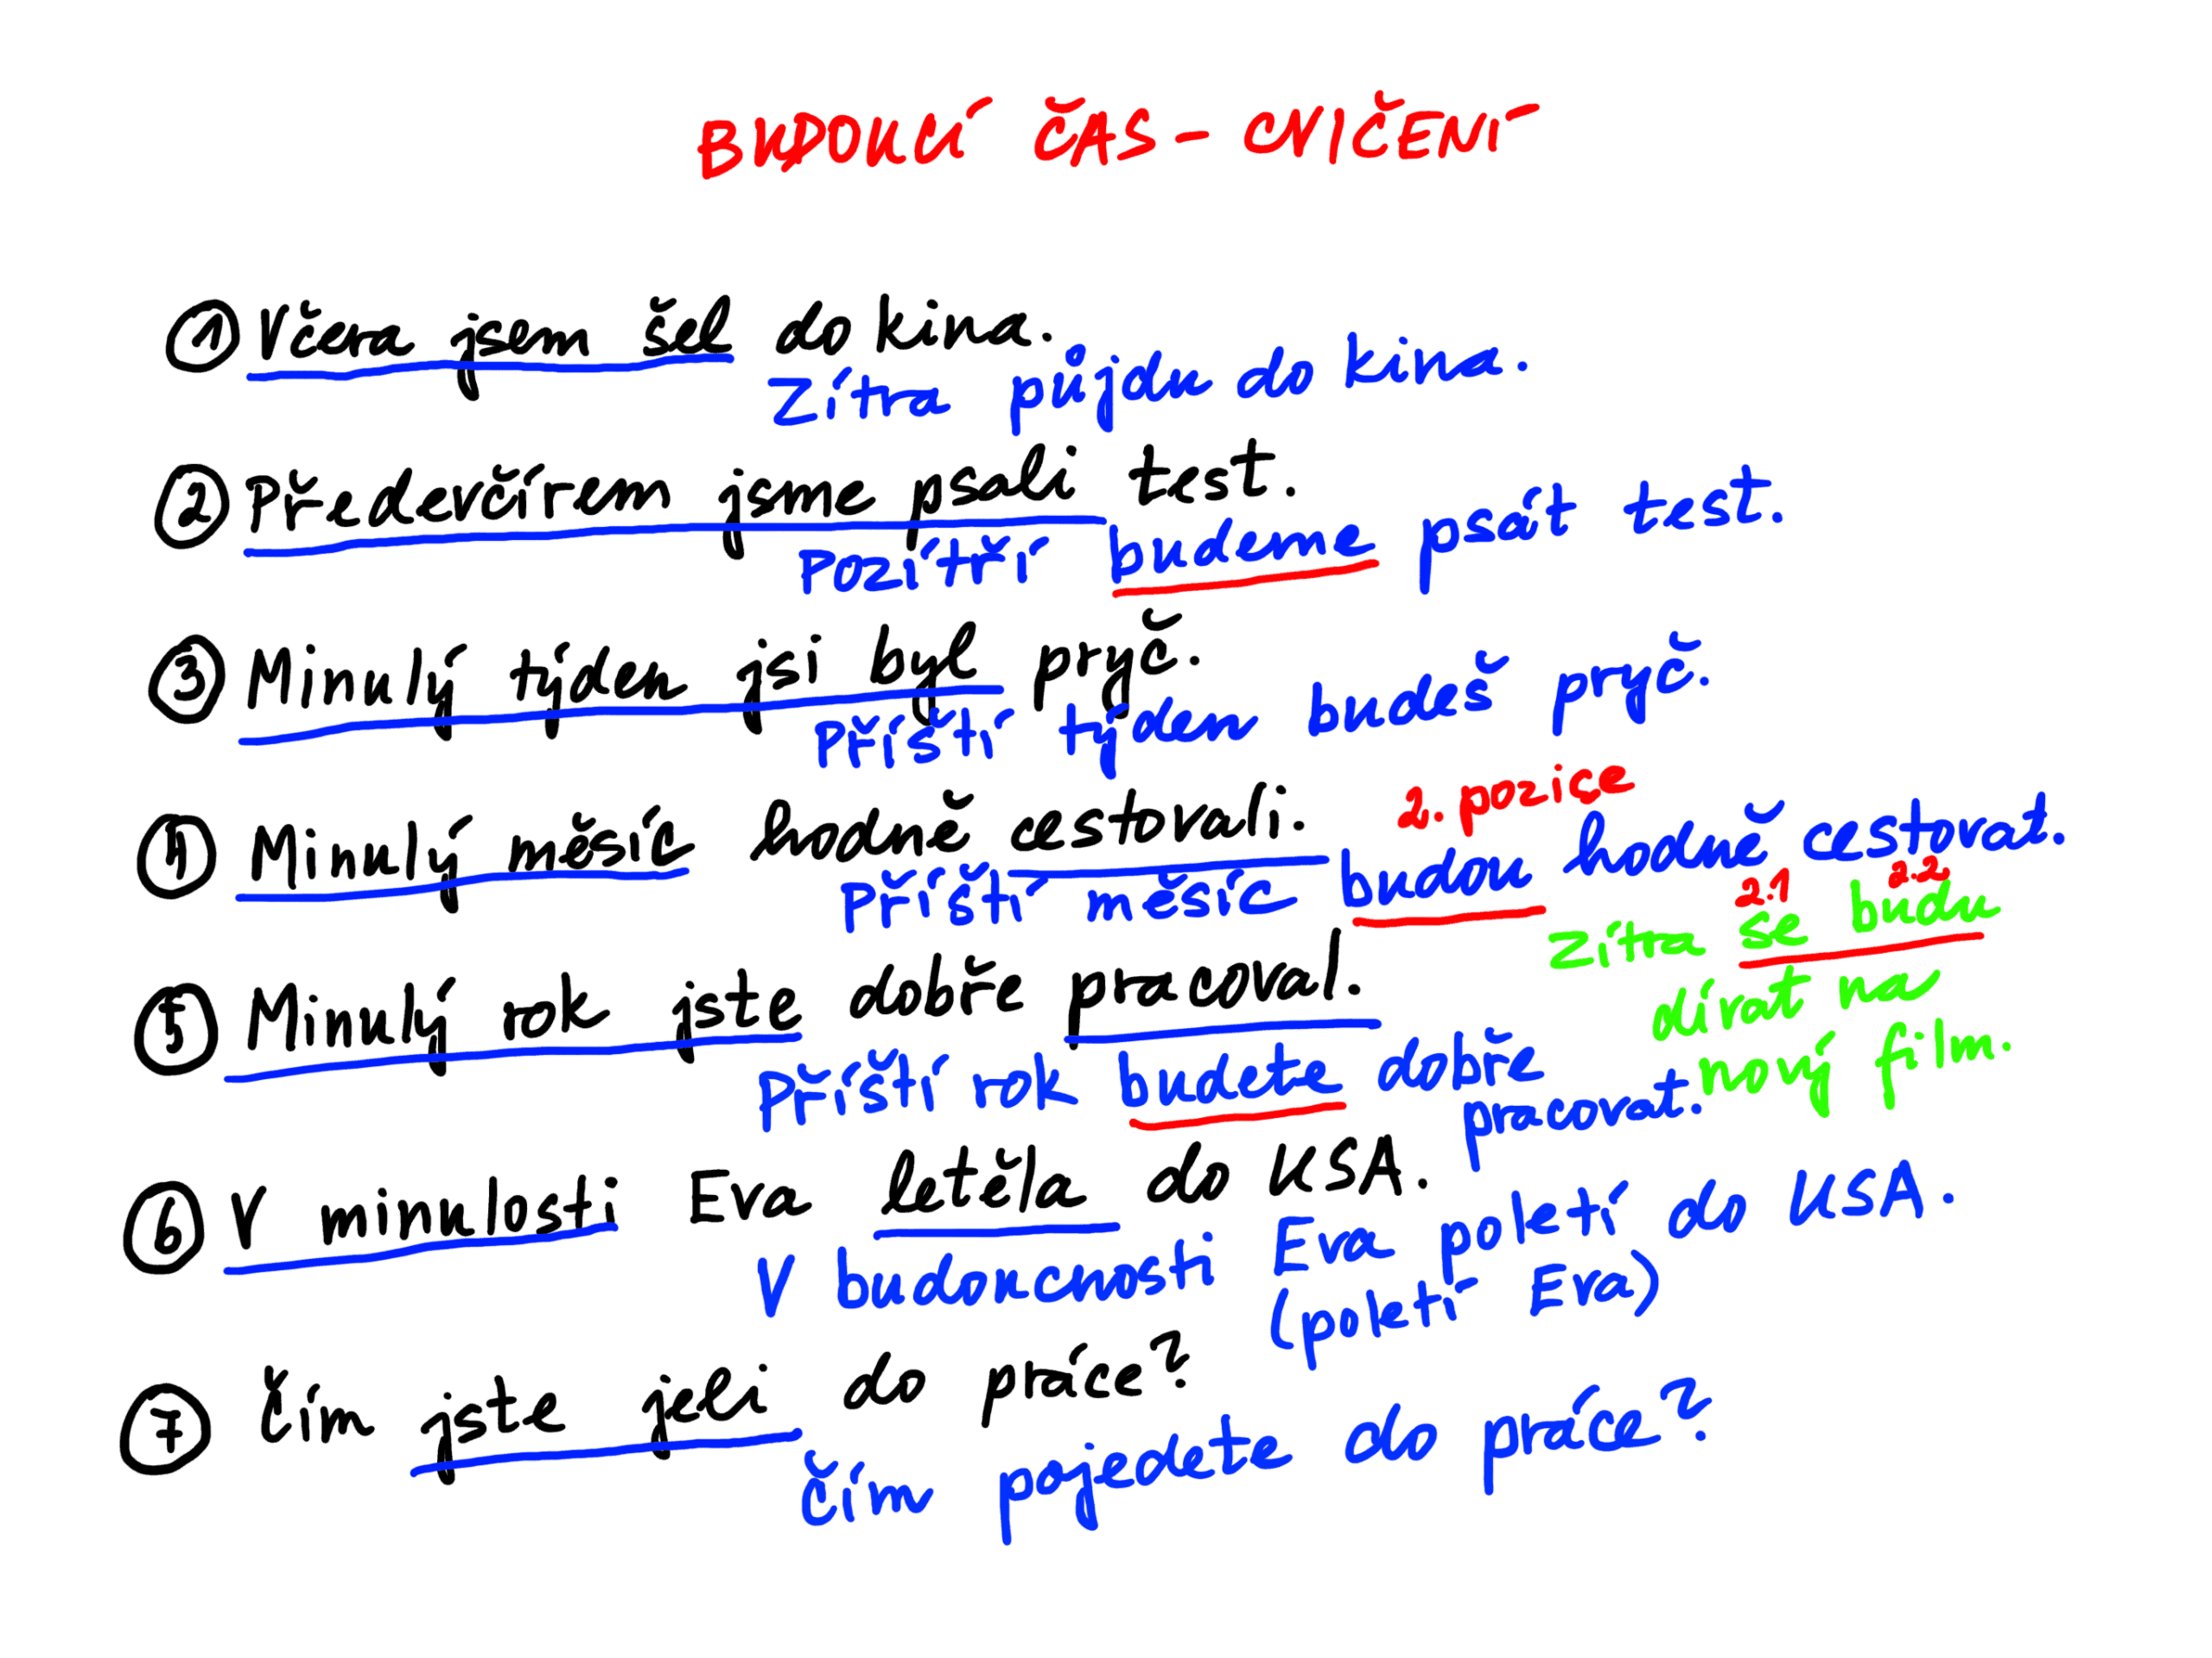 BUDOUCÍ ČAS - CVIČENÍ
① Včera jsem šel do kina.
Zítra půjdu do kina.
② Předevčírem jsme psali test.
Pozítří budeme psát test.
③ Minulý týden jsi byl pryč.
Příští týden budeš pryč.
④ Minulý měsíc hodně cestovali.
2. pozice
Příští měsíc budou hodně cestovat.
2.1 2.2
Zítra se budu
dívat na
nový film.
⑤ Minulý rok jste dobře pracoval.
Příští rok budete dobře
pracovat.
⑥ V minulosti Eva letěla do USA.
V budoucnosti Eva poletí do USA.
(poletí Eva)
⑦ Čím jste jeli do práce?
Čím pojedete do práce?